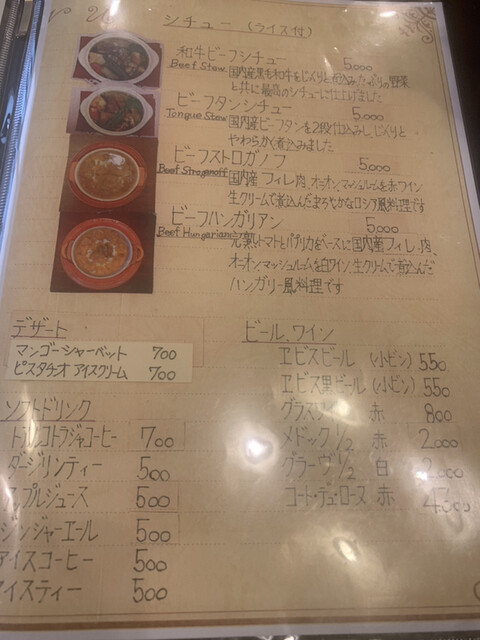 シチュー (ライス付)
和牛ビーフシチュー 5,000
Beef Stew 国内産黒毛和牛をじっくりと煮込みたっぷりの野菜
と共に最高のシチューに仕上げました
ビーフタンシチュー 5,000
Tongue Stew 国内産ビーフタンを2段仕込みし、じっくりと
やわらかく煮込みました
ビーフストロガノフ 5,000
Beef Stroganoff 国内産フィレ肉、オニオン、マッシュルームを赤ワイン
生クリームで煮込んだまろやかなロシア風料理です
ビーフハンガリアン 5,000
Beef Hungarian 完熟トマトとパプリカをベースに国内産フィレ肉、
オニオン、マッシュルームを白ワイン、生クリームで煮込んだ
ハンガリー風料理です
デザート
マンゴーシャーベット 700
ピスタチオ アイスクリーム 700
ソフトドリンク
トラジャコーヒー 700
ダージリンティー 500
アップルジュース 500
ジンジャーエール 500
アイスコーヒー 500
アイスティー 500
ビール、ワイン
ヱビスビール (小ビン) 550
ヱビス黒ビール (小ビン) 550
赤 800
メドック 1/2 赤 2,000
グラーヴ 1/2 白 2,000
コート・デュ・ローヌ 赤